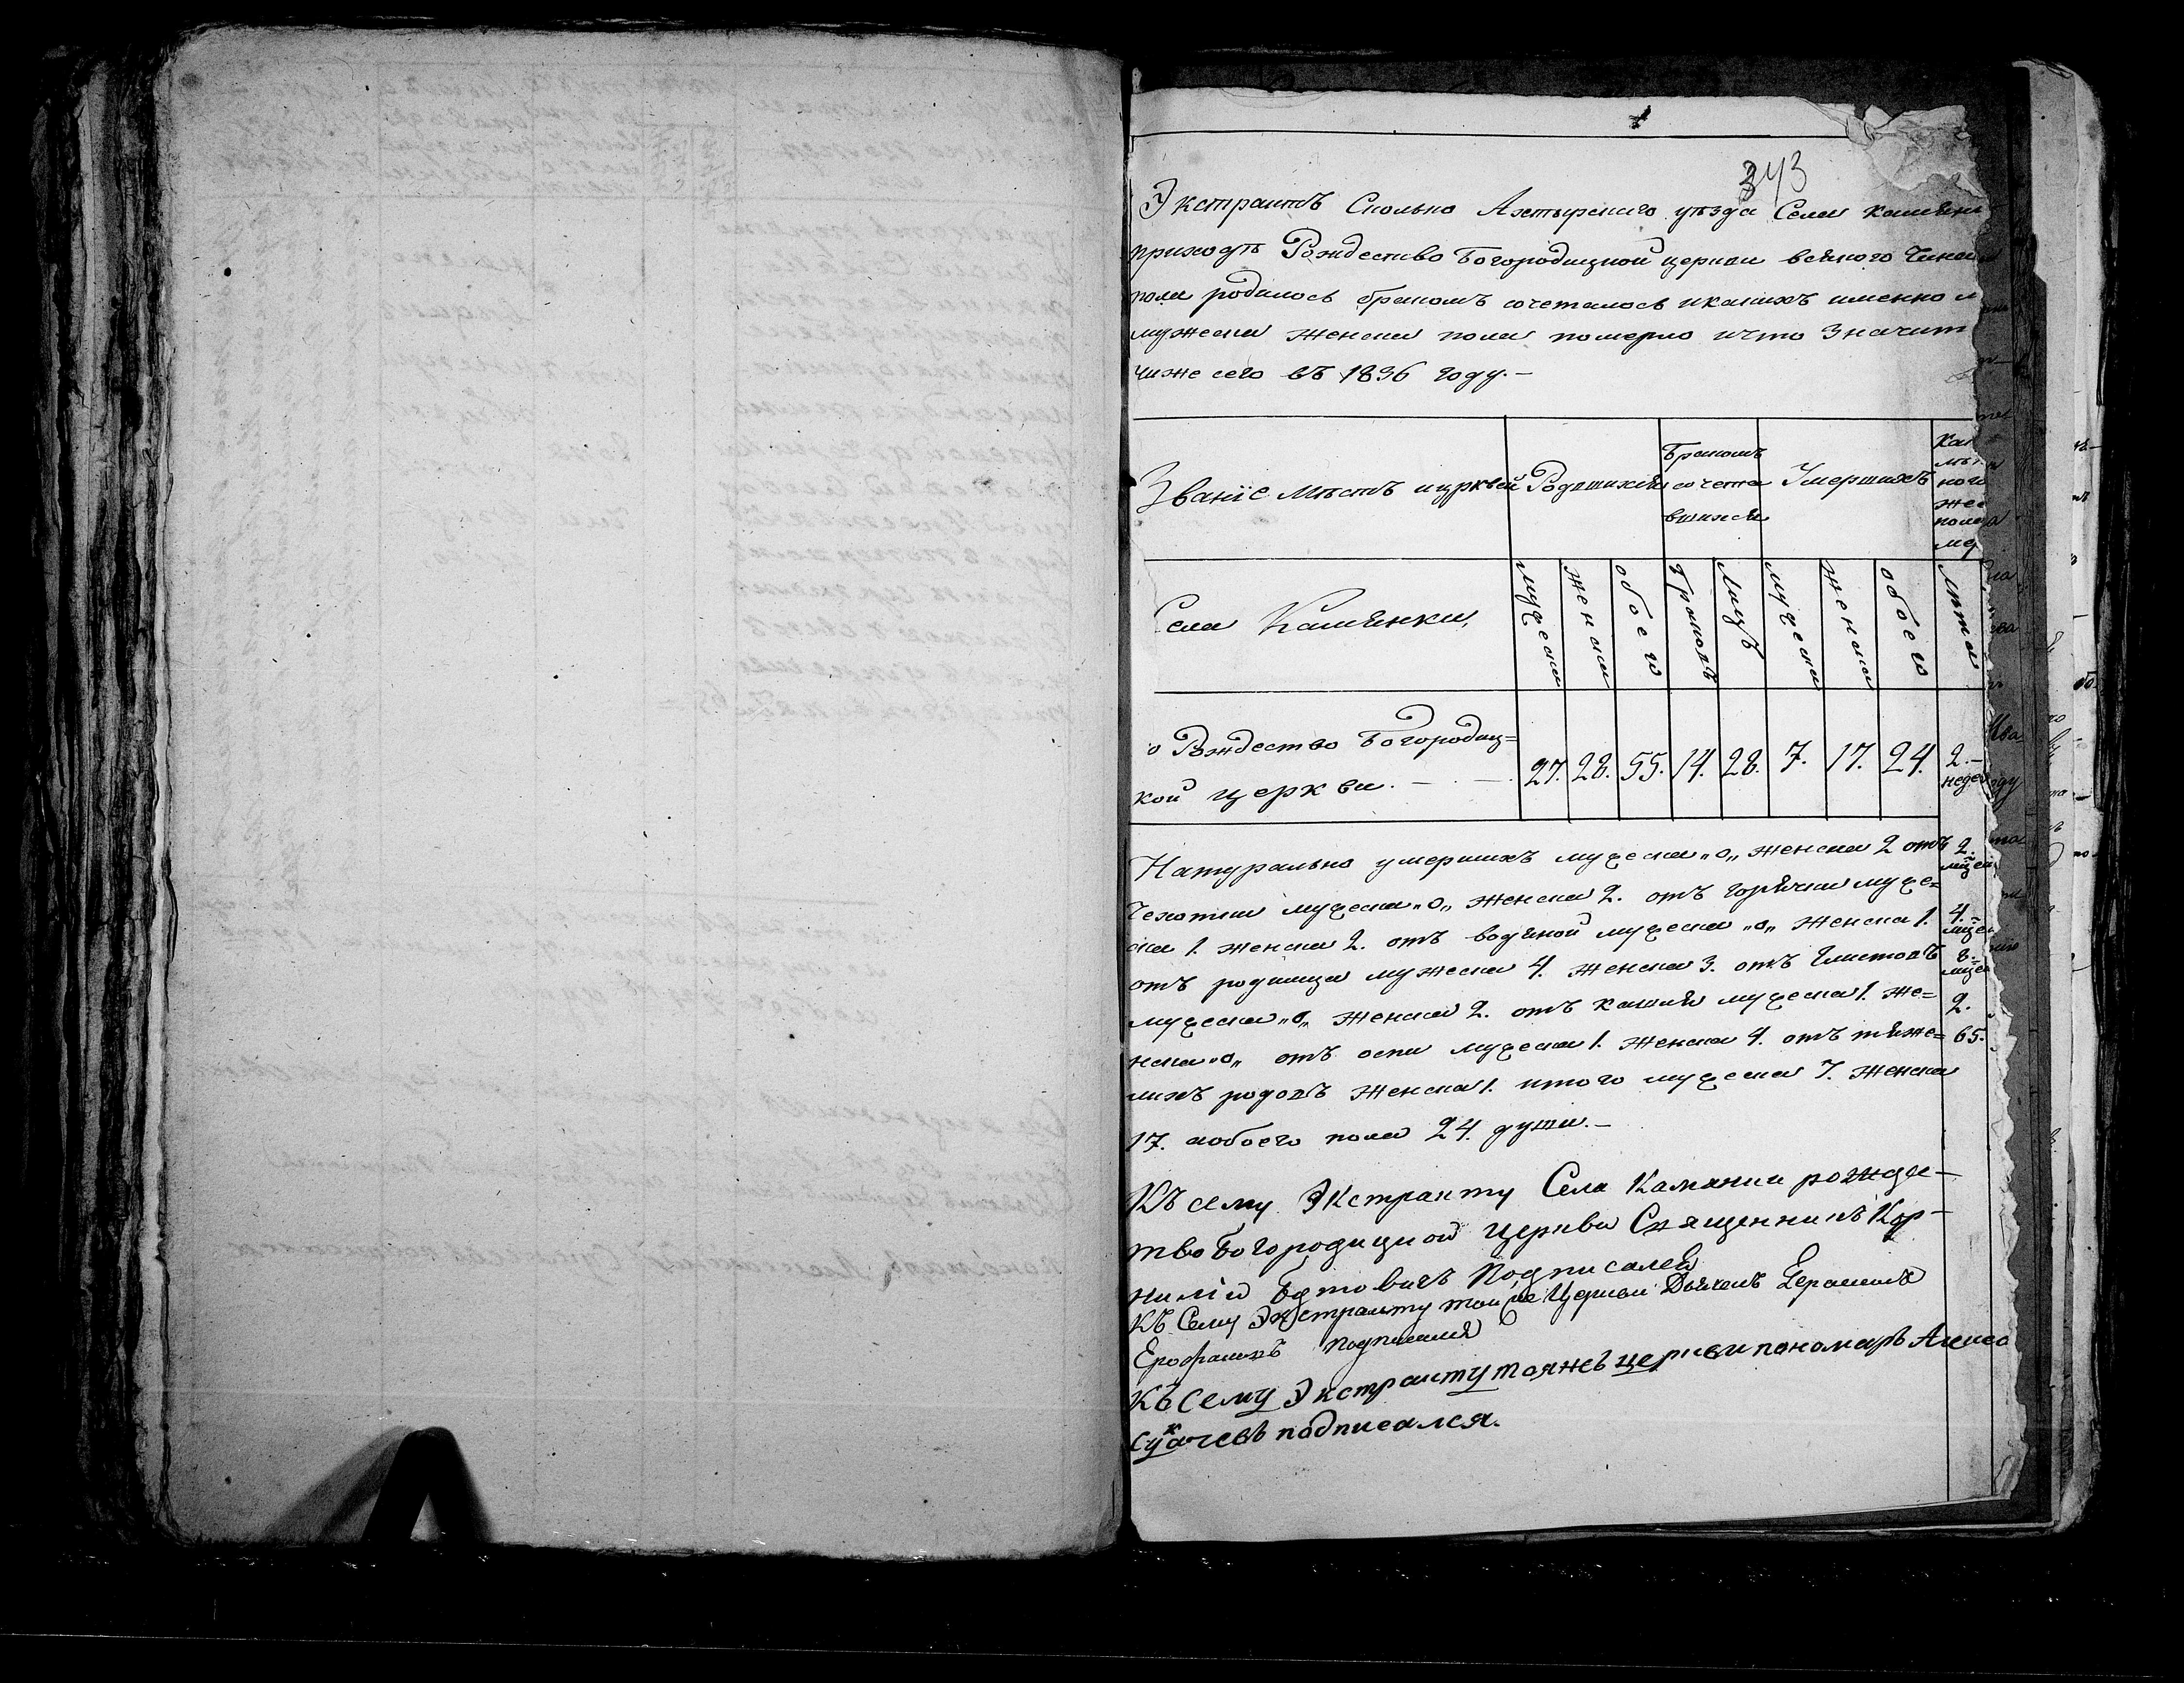 343
Экстрактъ Сколько Ахтырскаго уѣзда Села Камянк
приходѣ Рождество Богородицкой церкви всякого Чина
пола родилось бракомъ сочеталось икакихъ именно л
мужеска женска пола померло ичто Значит
ниже сего въ 1836 году.—
Званіе Мѣстъ ицрквей Родившихся Бракомъ сочета вшихся Умершихъ
Села Камянки, мужеска женска обоего браковъ Лицъ мужеска женска обоего Лѣта
о Рождество Богородиц=
кой церкви. — 27. 28. 55. 14. 28. 7. 17. 24. 2.—
Натурально умершихъ мужеска „о„ женска 2 отъ 2.
Чехотки мужеска „о„ женска 2. отъ горячки муже=
ска 1. женска 2. отъ водяной мужеска „о„ женска 1. 4.
отъ родимца мужеска 4. женска 3. отъ Глистовъ 8.
мужеска „о„ женска 2. отъ кашля мужеска 1. же= 2.
нска „о„ отъ оспи мужеска 1. женска 4. отъ тяже= 65.
лихъ родовъ женска 1. итого мужеска 7. женска
17. аобоего пола 24. души.—
Къ сему Экстракту Села Камянки рожде-
тво Богородицкой Церкви Священникъ Кор-
нилій Бутовичъ Подписался
Къ Сему Экстракту той же Церкви Дьячекъ Герасимъ
Ерофаловъ Подписался
Къ Сему Экстракту тояжъ церкви пономарь Алексе
Сукачевъ подписался.